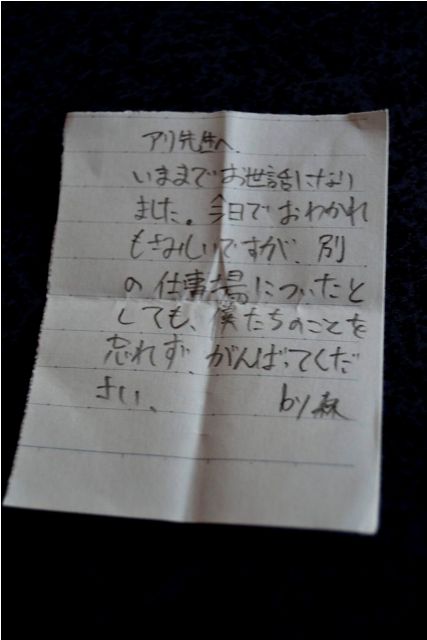 アリ先生へ.
いままでお世話になり
ました。今日でおわかれ
もさみしいですが、別
の仕事場についたと
しても、僕たちのことを
忘れず、がんばってくだ
さい、 by 森